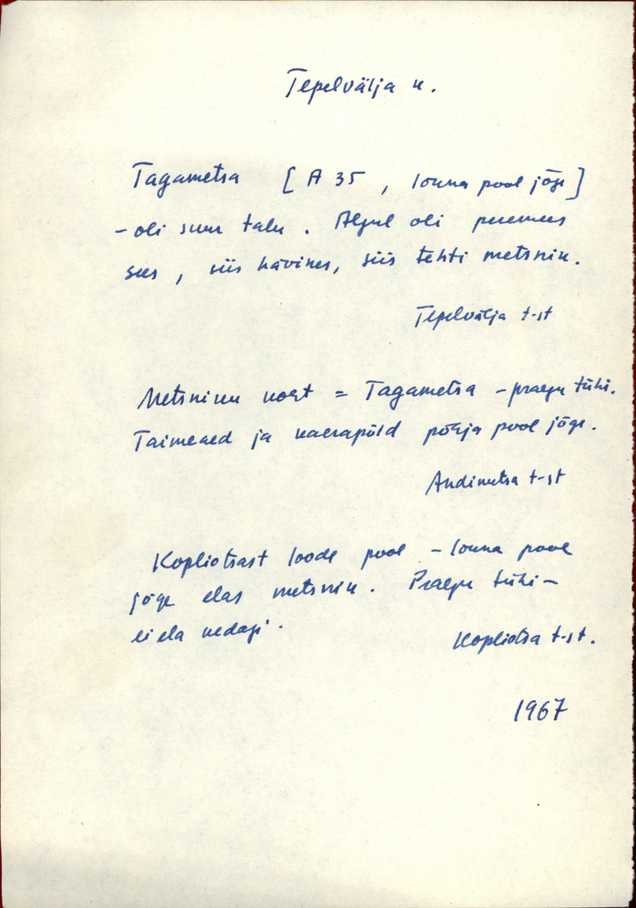 Tepelvälja k.
Tagametsa [A 35, lõuna pool jõge]
- oli suur talu. Algul oli peremees
sees, siis hävines, siis tehti metsnik.
Tepelvälja t-st
Metsniku koht = Tagametsa - praegu tühi.
Taimeaed ja kaerapõld põhja pool jõge.
Andimetsa t-st
Kopliotsast loode pool - lõuna pool
jõge elas metsnik. Praegu tühi -
ei ela kedagi.
Kopliotsa t-st.
1967